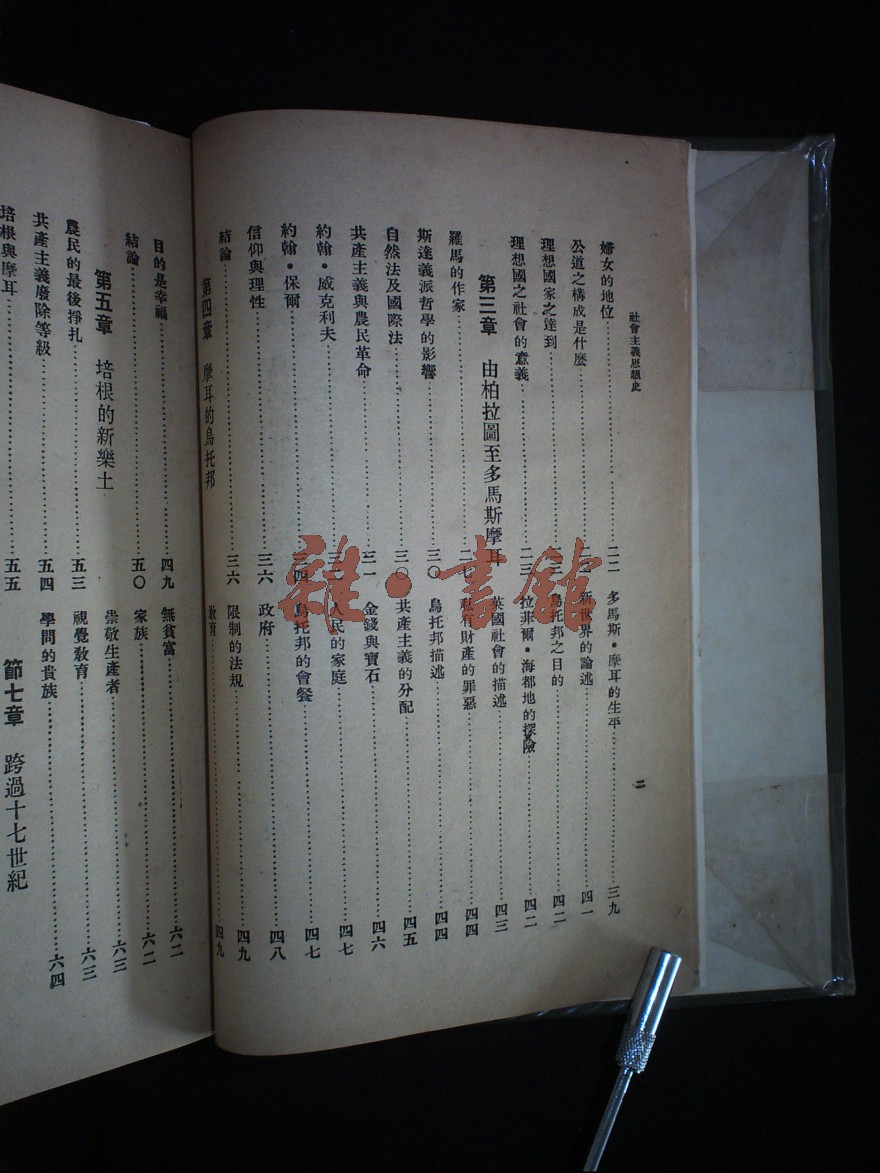 社會主義思想史
二
婦女的地位……二二
公道之構成是什麽……
理想國家之達到……二三
理想國之社會的意義……二三
第三章 由柏拉圖至多馬斯摩耳
羅馬的作家……二七
斯達義派哲學的影響……三〇
自然法及國際法……三〇
共產主義與農民革命……三一
約翰・威克利夫……
約翰・保爾……三四
信仰與理性……三六
結論……三六
第四章 摩耳的烏托邦
多馬斯・摩耳的生平……三九
新世界的論述……四一
烏托邦之目的……四二
拉菲爾・海都地的探險……四二
英國社會的描述……四三
私有財產的罪惡……四四
烏托邦描述……四四
共產主義的分配……四五
金錢與寶石……四六
人民的家庭……四七
烏托邦的會餐……四七
政府……四八
限制的法規……四九
教育……四九
目的是幸福……四九
結論……五〇
第五章 培根的新樂土
農民的最後掙扎……五三
共產主義廢除等級……五四
培根與摩耳……五五
無貧富……六二
家族……六二
崇敬生產者……六三
視覺教育……六三
學問的貴族……六四
節七章 跨過十七世紀
雜・書館